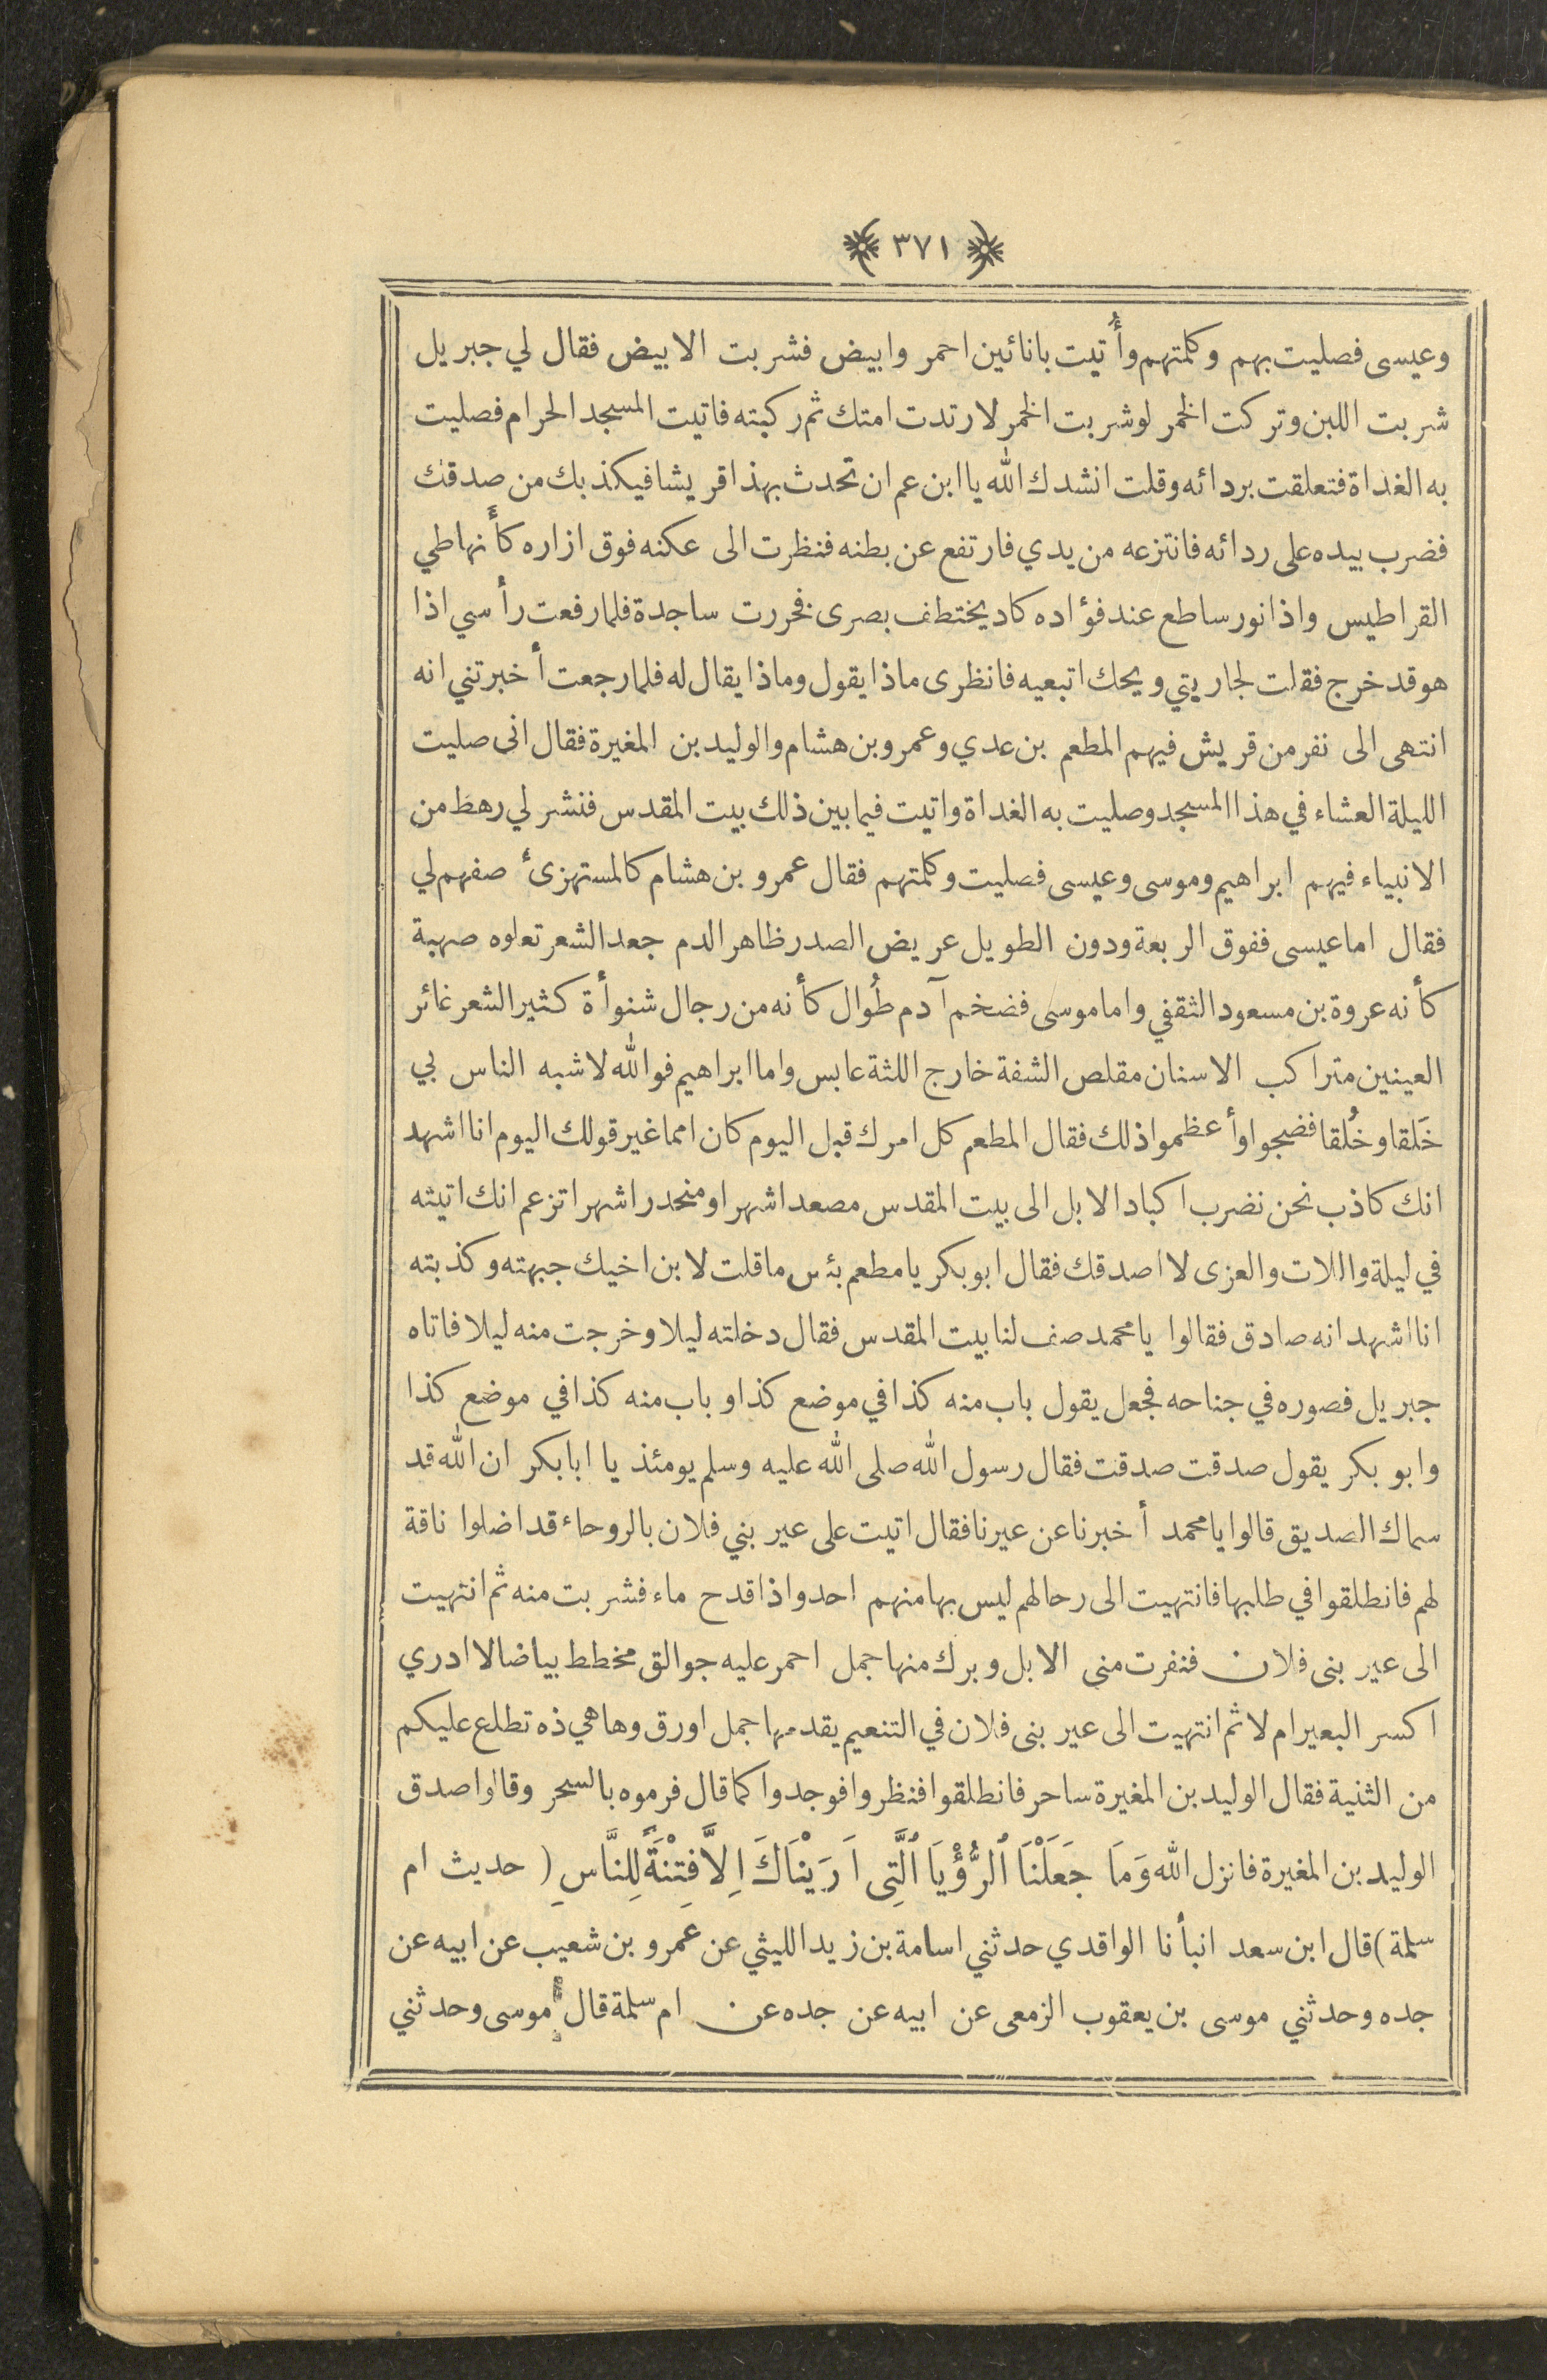 ٣٧١
وعيسى فصليت بهم وكلمتهم وأُتيت بانائين احمر وابيض فشربت الابيض فقال لي جبريل
شربت اللبن وتركت الخمر لو شربت الخمر لارتدت امتك ثم ركبته فاتيت المسجد الحرام فصليت
به الغداة فتعلقت بردائه وقلت انشدك الله يا ابن عم ان تحدث بهذا قريشا فيكذبك من صدقك
فضرب بيده على ردائه فانتزعه من يدي فارتفع عن بطنه فنظرت الى عكنه فوق ازاره كأنها طي
القراطيس واذا نور ساطع عند فؤاده كاد يختطف بصرى فخررت ساجدة فلما رفعت رأسي اذا
هو قد خرج فقلت لجاريتي ويحك اتبعيه فانظرى ماذا يقول وماذا يقال له فلما رجعت أخبرتني انه
انتهى الى نفر من قريش فيهم المطعم بن عدي وعمرو بن هشام والوليد بن المغيرة فقال انى صليت
الليلة العشاء في هذا المسجد وصليت به الغداة واتيت فيما بين ذلك بيت المقدس فنشر لي رهط من
الانبياء فيهم ابراهيم وموسى وعيسى فصليت وكلمتهم فقال عمرو بن هشام كالمستهزئ صفهم لي
فقال اما عيسى ففوق الربعة ودون الطويل عريض الصدر ظاهر الدم جعد الشعر تعلوه صهبة
كأنه عروة بن مسعود الثقفي واما موسى فضخم آدم طُوال كأنه من رجال شنوأة كثير الشعر غائر
العينين متراكب الاسنان مقلص الشفة خارج اللثة عابس واما ابراهيم فوالله لاشبه الناس بي
خَلقا وخُلقا فضجوا وأعظموا ذلك فقال المطعم كل امرك قبل اليوم كان امما غير قولك اليوم انا اشهد
انك كاذب نحن نضرب اكباد الابل الى بيت المقدس مصعدا شهرا ومنحدرا شهرا تزعم انك اتيته
في ليلة واللات والعزى لا اصدقك فقال ابو بكر يا مطعم بئس ما قلت لابن اخيك جبهته وكذبته
انا اشهد انه صادق فقالوا يا محمد صف لنا بيت المقدس فقال دخلته ليلا وخرجت منه ليلا فاتاه
جبريل فصوره في جناحه فجعل يقول باب منه كذا في موضع كذا وباب منه كذا في موضع كذا
وابو بكر يقول صدقت صدقت فقال رسول الله صلى الله عليه وسلم يومئذ يا ابا بكر ان الله قد
سماك الصديق قالوا يا محمد أخبرنا عن عيرنا فقال اتيت على عير بني فلان بالروحاء قد اضلوا ناقة
لهم فانطلقوا في طلبها فانتهيت الى رحالهم ليس بها منهم احد واذا قدح ماء فشربت منه ثم انتهيت
الى عير بنى فلان فنفرت منى الابل وبرك منها جمل احمر عليه جوالق مخطط بياضا لا ادري
اكسر البعير ام لا ثم انتهيت الى عير بنى فلان في التنعيم يقدمها جمل اورق وها هي ذه تطلع عليكم
من الثنية فقال الوليد بن المغيرة ساحر فانطلقوا فنظروا فوجدوا كما قال فرموه بالسحر وقالوا صدق
الوليد بن المغيرة فانزل الله وَمَا جَعَلْنَا ٱلرُّؤْيَا ٱلَّتِى اَرَيْنَاكَ اِلَّا فِتْنَةً لِلنَّاسِ ( حديث ام
سلمة ) قال ابن سعد انبأنا الواقدي حدثني اسامة بن زيد الليثي عن عمرو بن شعيب عن ابيه عن
جده وحدثني موسى بن يعقوب الزمعى عن ابيه عن جده عن ام سلمة قال موسى وحدثني